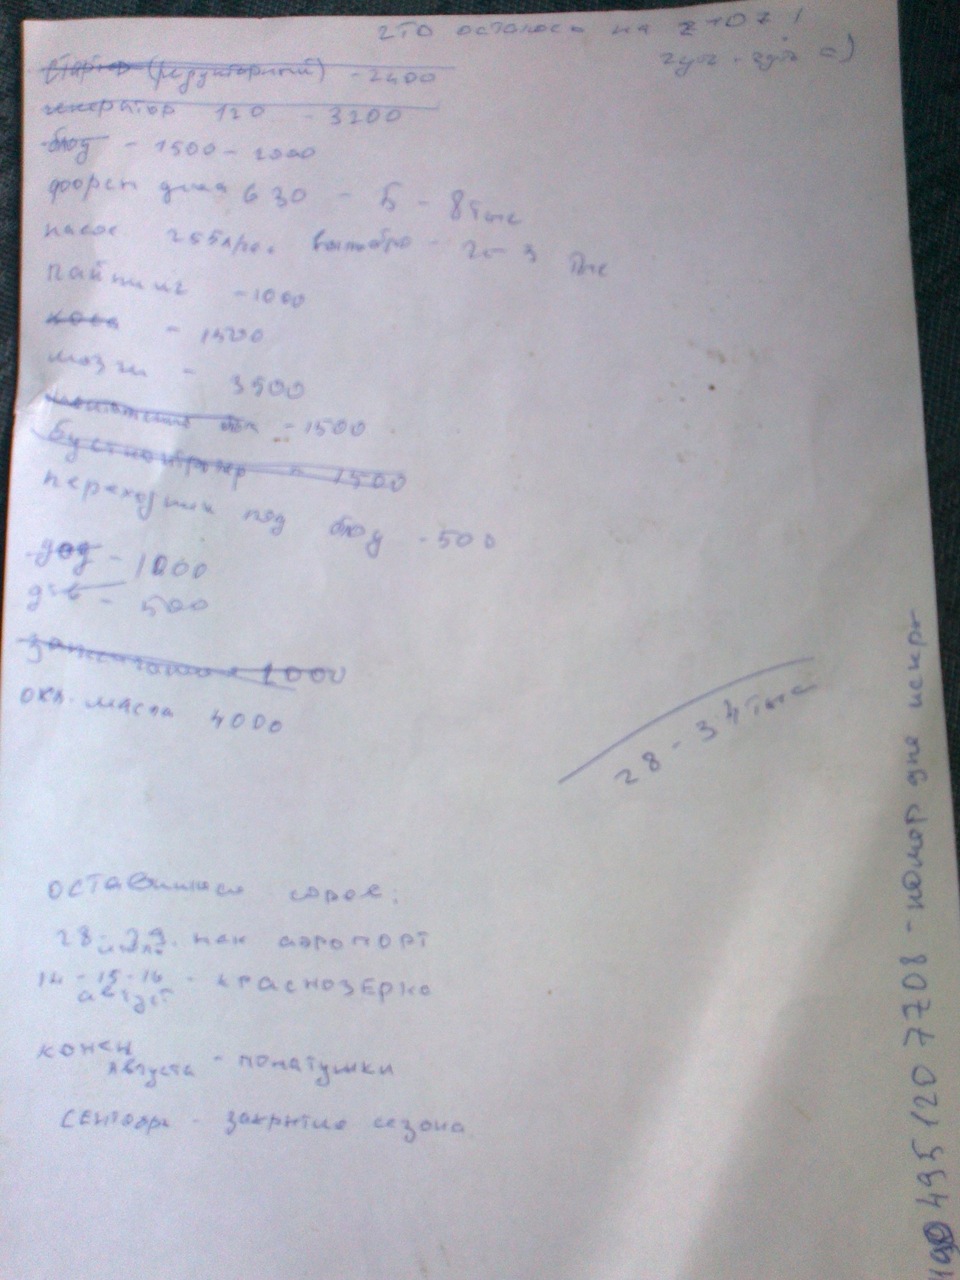 что осталось на 2107!
стартер (редукторный) - 2400
генератор 120 - 3200
блоу - 1500 - 2000
форсы дина 630 - 5 - 8 тыс
насос 255 лрс валобро - 2 - 3 тыс
пайпинг - 1000
коса - 1500
мозги - 3500
- 1500
бустконтролер - 1500
переходники под блоу - 500
дад - 1000
дтв - 500
зажигания 1000
охл. масла 4000
28 - 34 тыс
оставшиеся соров:
28-29 июля. пск аэропорт
14-15-16 август - краснозерка
конец августа - покатушки
сентябрь - закрытие сезона
495 120 7708 - номер дпс искра